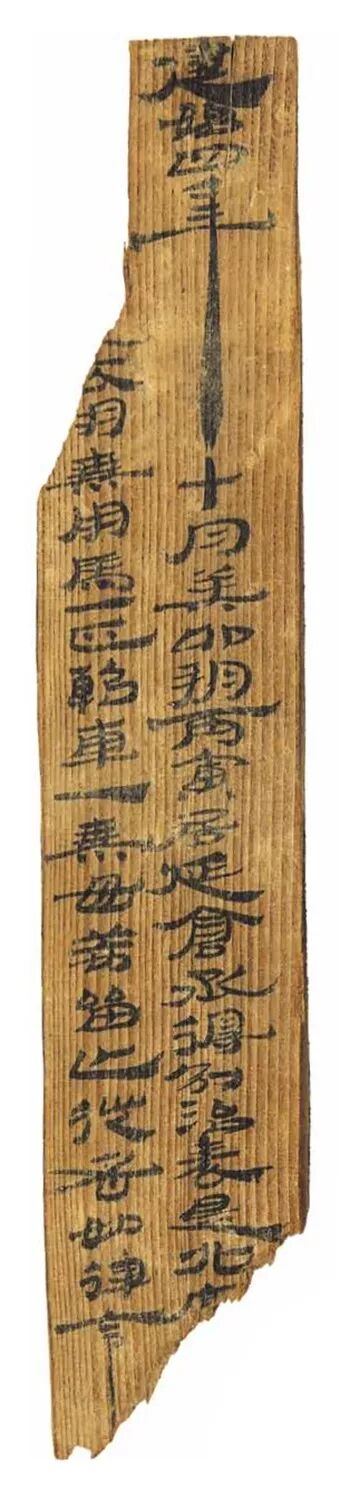 建始四年十月癸卯朔丙寅居延倉丞得別治表是北
乘用馬一匹軺車一乘毋苛留止從者如律令